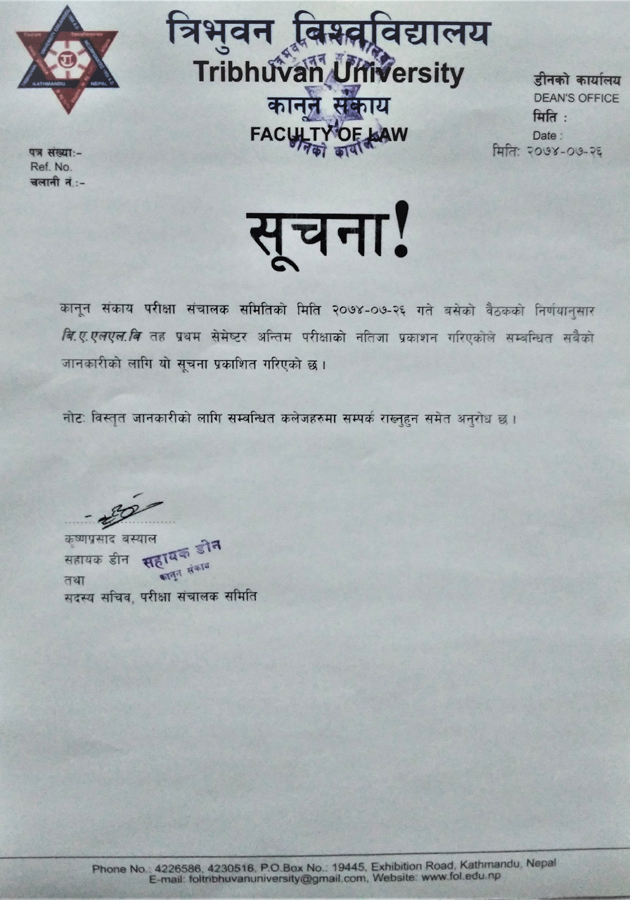 त्रिभुवन विश्वविद्यालय
Tribhuvan University
कानून संकाय
FACULTY OF LAW
KATHMANDU
NEPAL
डीनको कार्यालय
DEAN'S OFFICE
मिति :
Date :
मितिः २०७४-०७-२६
पत्र संख्याः-
Ref. No.
चलानी नं.:-
कानून संकाय
डीनको कार्यालय
सूचना!
कानून संकाय परीक्षा संचालक समितिको मिति २०७४-०७-२६ गते बसेको बैठकको निर्णयानुसार
बि.ए.एलएल.बि तह प्रथम सेमेष्टर अन्तिम परीक्षाको नतिजा प्रकाशन गरिएकोले सम्बन्धित सबैको
जानकारीको लागि यो सूचना प्रकाशित गरिएको छ ।
नोटः विस्तृत जानकारीको लागि सम्बन्धित कलेजहरुमा सम्पर्क राख्नुहुन समेत अनुरोध छ ।
कृष्णप्रसाद बस्याल
सहायक डीन
सहायक डीन
कानून संकाय
तथा
सदस्य सचिव, परीक्षा संचालक समिति
Phone No.: 4226586, 4230516, P.O.Box No.: 19445, Exhibition Road, Kathmandu, Nepal
E-mail: foltribhuvanuniversity@gmail.com, Website: www.fol.edu.np